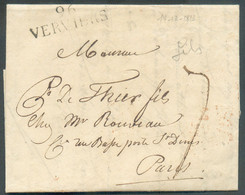 96
VERVIERS
Monsieur
De Thier fils
Chez Mr Rouveau
rue Basse porte St Denis
Paris